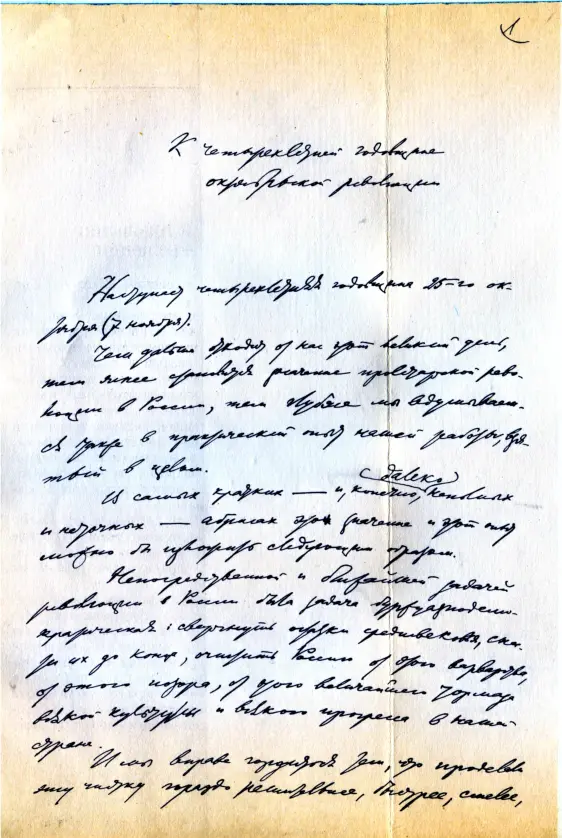 1
К четырехлетней годовщине
октябрьской революции
Наступает четырехлетняя годовщина 25-го ок-
тября (7 ноября).
Чем дальше отходит от нас этот великий день,
тем яснее становится значение пролетарской рево-
люции в России, тем глубже мы вдумываем-
ся также в практический опыт нашей работы, взя-
тый в целом.
далеко
В самых кратких — и, конечно, неполных
и неточных — абрисах это значение и этот опыт
можно бы изложить следующим образом.
Непосредственной и ближайшей задачей
революции в России была задача буржуазно-демо-
кратическая: свергнуть остатки средневековья, сне-
сти их до конца, очистить Россию от этого варварства,
от этого позора, от этого величайшего тормоза
всякой культуры и всякого прогресса в нашей
стране.
И мы вправе гордиться тем, что проделали
эту чистку гораздо решительнее, быстрее, смелее,